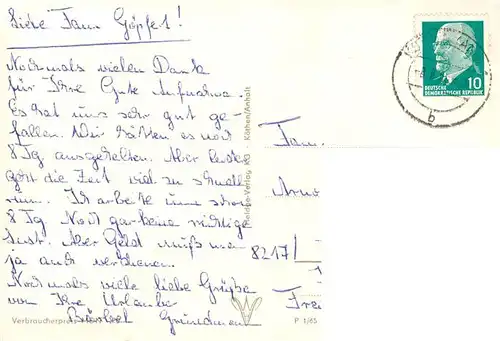 Liebe Fam. Göpfert!
Nochmals vielen Dank
für Ihre Gute Aufnahme.
Es hat uns sehr gut ge-
fallen. Wir hätten es noch
8 Tg ausgehalten. Aber leider
geht die Zeit viel zu schnell
rum. Ich arbeite nun schon
8 Tg Noch gar keine richtige
Lust. Aber Geld muß man
ja auch verdienen.
Nochmals viele liebe Grüße
von Ihre Urlauber
Bärbel Grundmann
Verbraucherpre
Bild-Verlag KG · Köthen/Anhalt
P 1/65
10
DEUTSCHE
DEMOKRATISCHE REPUBLIK
b
Fam.
8217